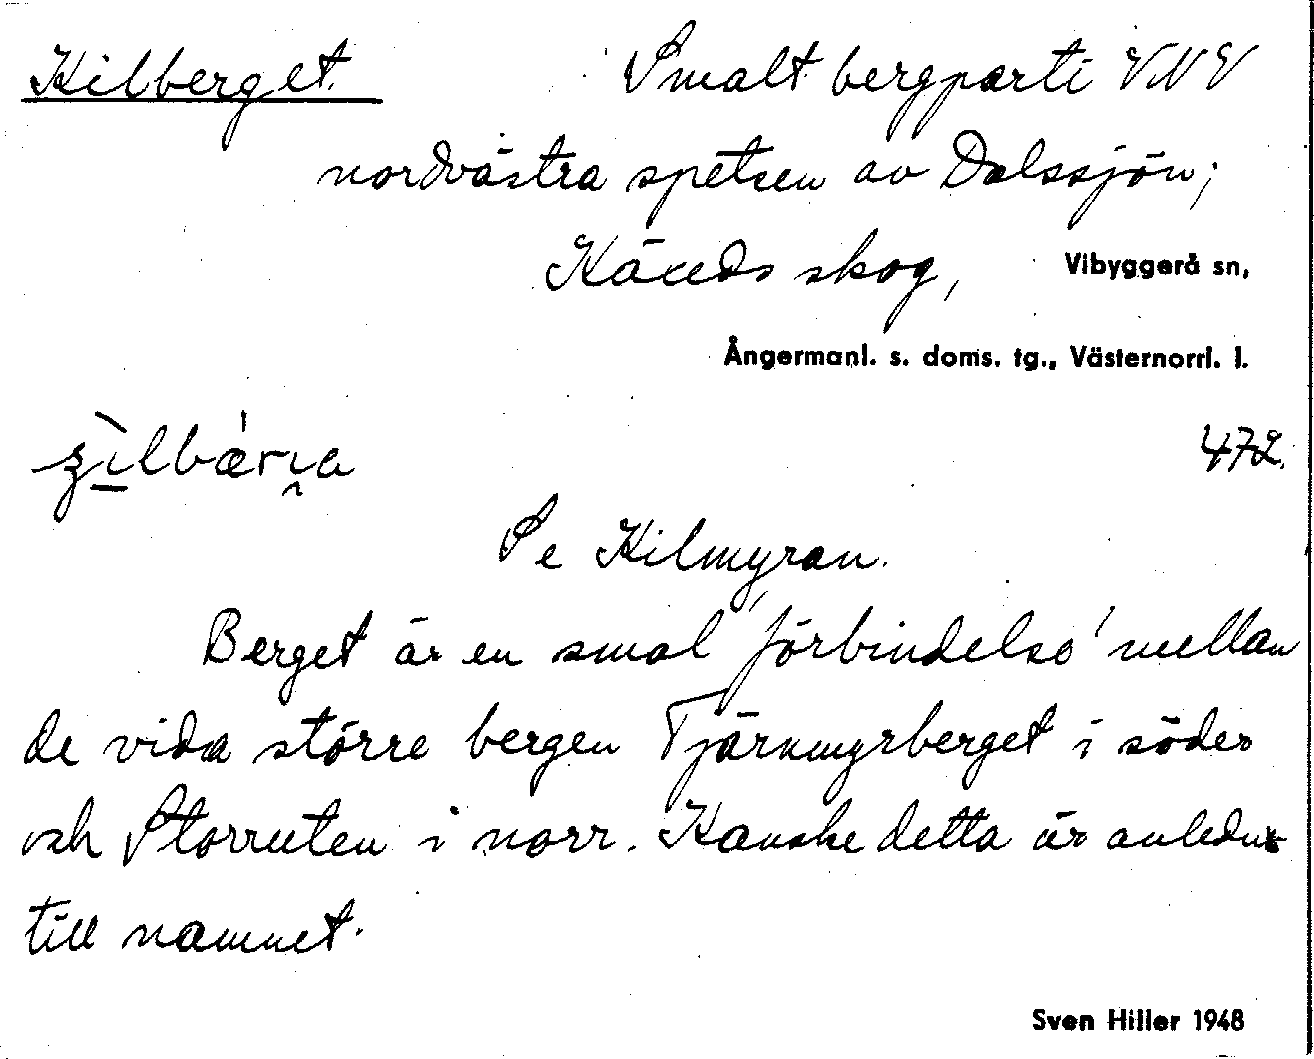 Kilberget. Smalt bergparti VNV
nordvästra spetsen av Dalssjön;
skog, Vibyggerå sn,
Ångermanl. s. doms. tg., Västernorrl. l.
472.
Se Kilmyran.
Berget är en smal 'förbindelse' mellan
de vida större bergen Tjärnmyrberget i söder
och Storruten i norr. Kanske detta är anledn
till namnet.
Sven Hiller 1948